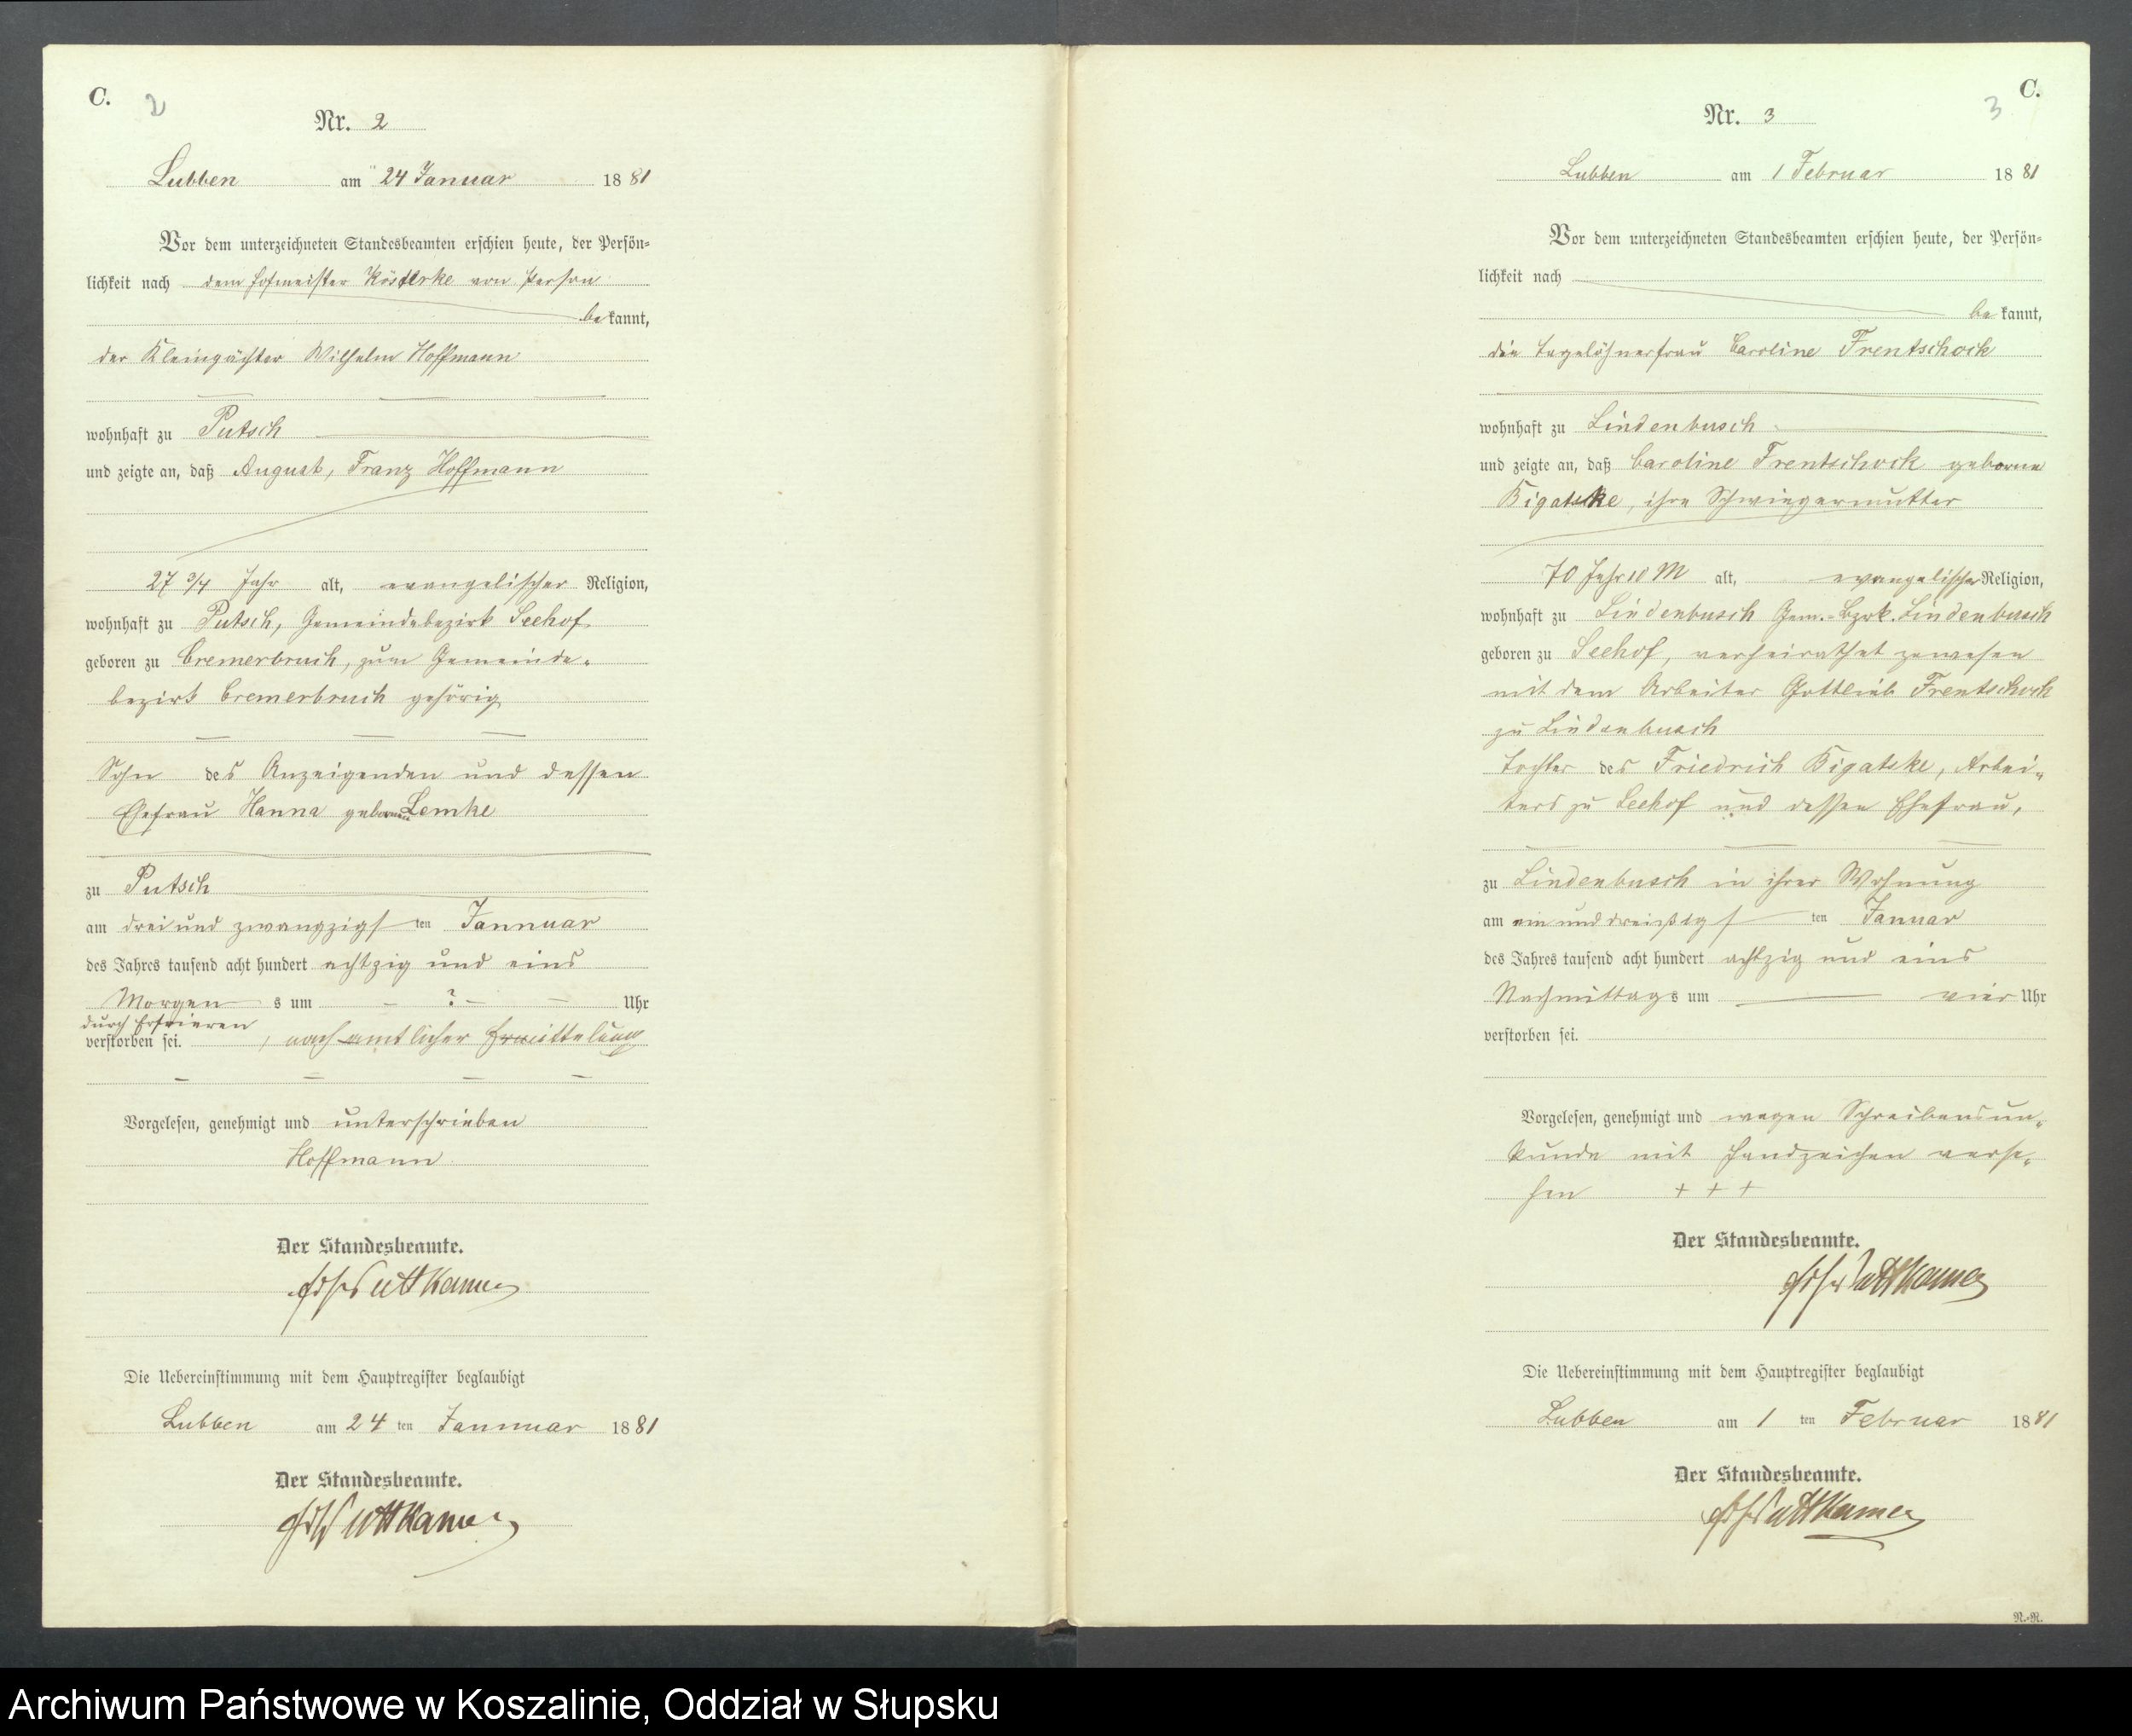 C.
2
Nr. 2
Lubben am 24 Januar 1881
Vor dem unterzeichneten Standesbeamten erschien heute, der Persön=
lichkeit nach dem Hofmeister Kösterke von Person
bekannt,
der Kleinpächter Wilhelm Hoffmann
wohnhaft zu Putsch
und zeigte an, daß August, Franz Hoffmann
27 3/4 Jahr alt, evangelischer Religion,
wohnhaft zu Putsch, Gemeindebezirk Seehof
geboren zu Cremerbruch, zum Gemeinde-
bezirk Cremerbruch gehörig
Sohn des Anzeigenden und dessen
Ehefrau Hanna geborenen Lemke
zu Putsch
am drei und zwanzigsten Jannuar
des Jahres tausend acht hundert achtzig und eins
Morgens um – ? – – Uhr
durch Erfrieren
verstorben sei. , nach amtlicher Ermittelung
Vorgelesen, genehmigt und unterschrieben
Hoffmann
Der Standesbeamte.
Puttkamer
Die Uebereinstimmung mit dem Hauptregister beglaubigt
Lubben am 24 ten Jannuar 1881
Der Standesbeamte.
Puttkamer
C.
3
Nr. 3
Lubben am 1 Februar 1881
Vor dem unterzeichneten Standesbeamten erschien heute, der Persön=
lichkeit nach
bekannt,
die Tagelöhnerfrau Caroline Frentschock
wohnhaft zu Lindenbusch
und zeigte an, daß Caroline Frentschock geborne
Bigatzke, ihre Schwiegermutter
70 Jahr 10 M alt, evangelischer Religion,
wohnhaft zu Lindenbusch Gem.-Bzrk. Lindenbusch
geboren zu Seehof, verheirathet gewesen
mit dem Arbeiter Gottlieb Frentschock
zu Lindenbusch
Tochter des Friedrich Bigatzke, Arbei-
ters zu Seehof und dessen Ehefrau,
zu Lindenbusch in ihrer Wohnung
am ein und dreißigsten Januar
des Jahres tausend acht hundert achtzig und eins
Nachmittags um vier Uhr
verstorben sei.
Vorgelesen, genehmigt und wegen Schreibensun-
kunde mit Handzeichen verse-
hen + + +
Der Standesbeamte.
Puttkamer
Die Uebereinstimmung mit dem Hauptregister beglaubigt
Lubben am 1 ten Februar 1881
Der Standesbeamte.
Puttkamer
N.-R.
Archiwum Państwowe w Koszalinie, Oddział w Słupsku